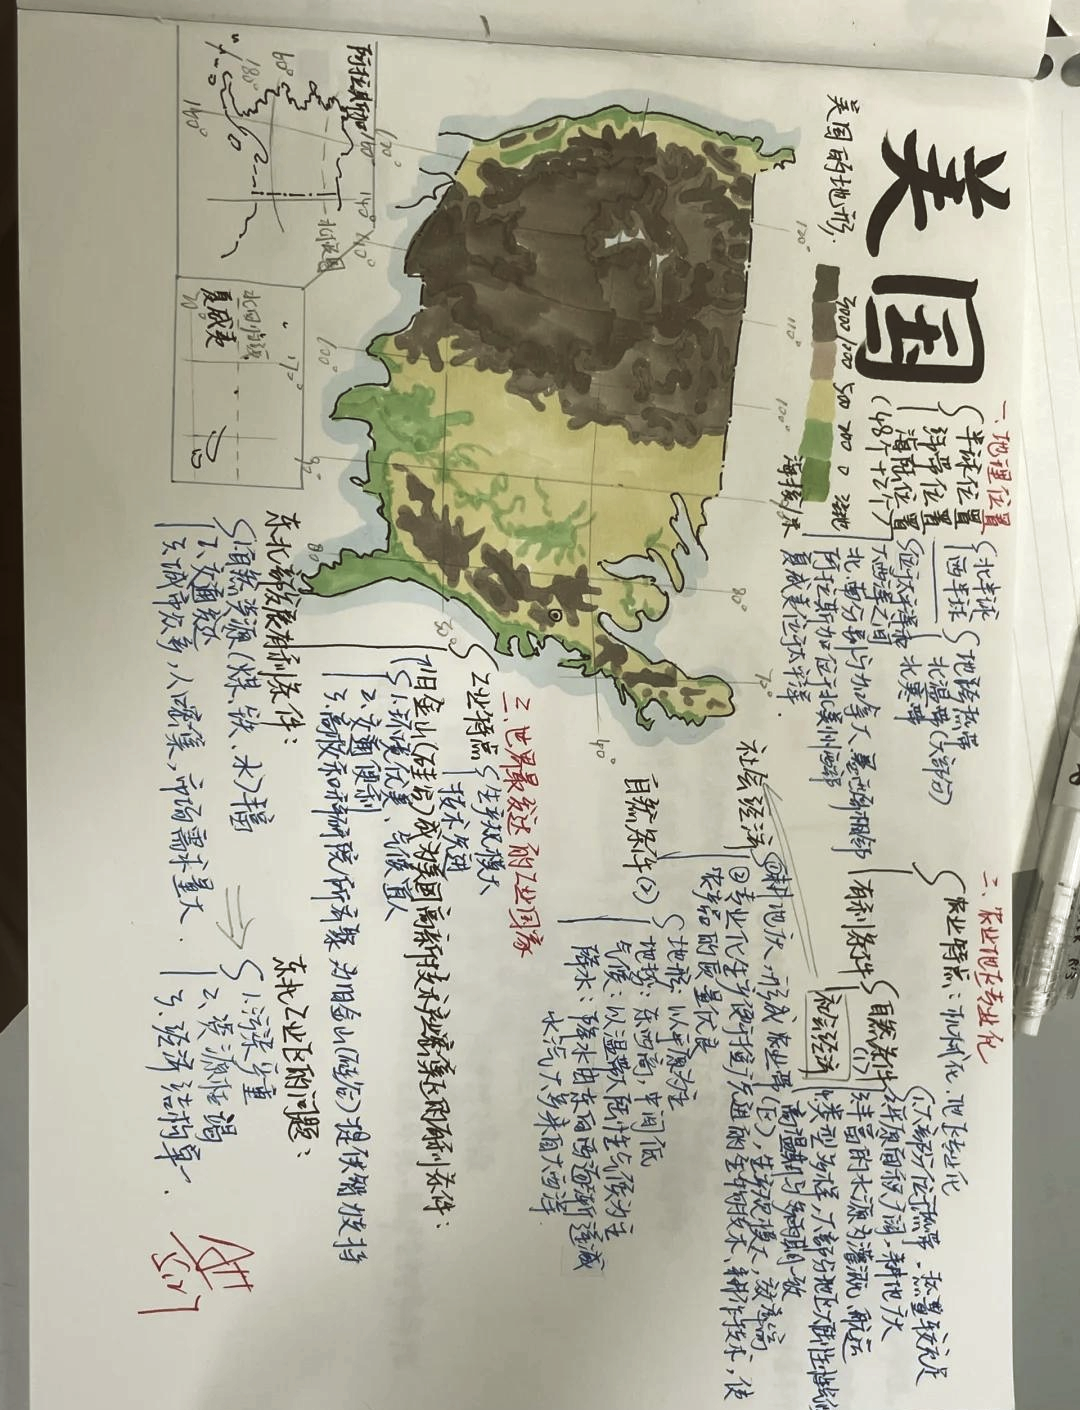 美国
美国的地形
3000 1000 500 200 0 洼地
海拔/米
120°
110°
100°
80°
70°
40°
30°
80°
90°
100°
阿拉斯加
180°
140°
60°
北回归线
夏威夷
170°
一、地理位置
半球位置
北半球
西半球
纬度位置
地跨热带
北温带(大部分)
北寒带
海陆位置
(48个+2个)
北面分别与加拿大、墨西哥相邻
阿拉斯加位于北美洲西北
夏威夷位于太平洋
二、农业地区专业化
农业特点:机械化、地区专业化
有利条件
自然条件
(1)
大部分位于温带,热量较充足
平原面积广阔,耕地广大
丰富的水源为灌溉、航运
类型多样,大部分地区为
高温期与多雨期一致
自然条件(2)
地形:以平原为主
地势:东西高,中间低
气候:以温带大陆性气候为主
降水:降水由东南向西逐渐递减
水汽大多来自大西洋
社会经济
社会经济
①耕地广大,形成农业带(区),生产规模大,效率高
②专业化生产便于推广先进的生产技术、耕作技术,使
农产品的质量优良
三、世界最发达的工业国家
工业特点
生产规模大
技术先进
旧金山(硅谷)成为美国高新技术产业密集区的有利条件:
1.环境优美、气候宜人
2.交通便利
3.高校和科研院所密集,为旧金山(硅谷)提供智力支持
东北部发展有利条件:
1.自然资源(煤、铁、水)丰富
2.交通发达
3.城市众多,人口密集,市场需求量大.
东北工业区的问题:
1.污染严重
2.资源枯竭
3.经济结构单一.